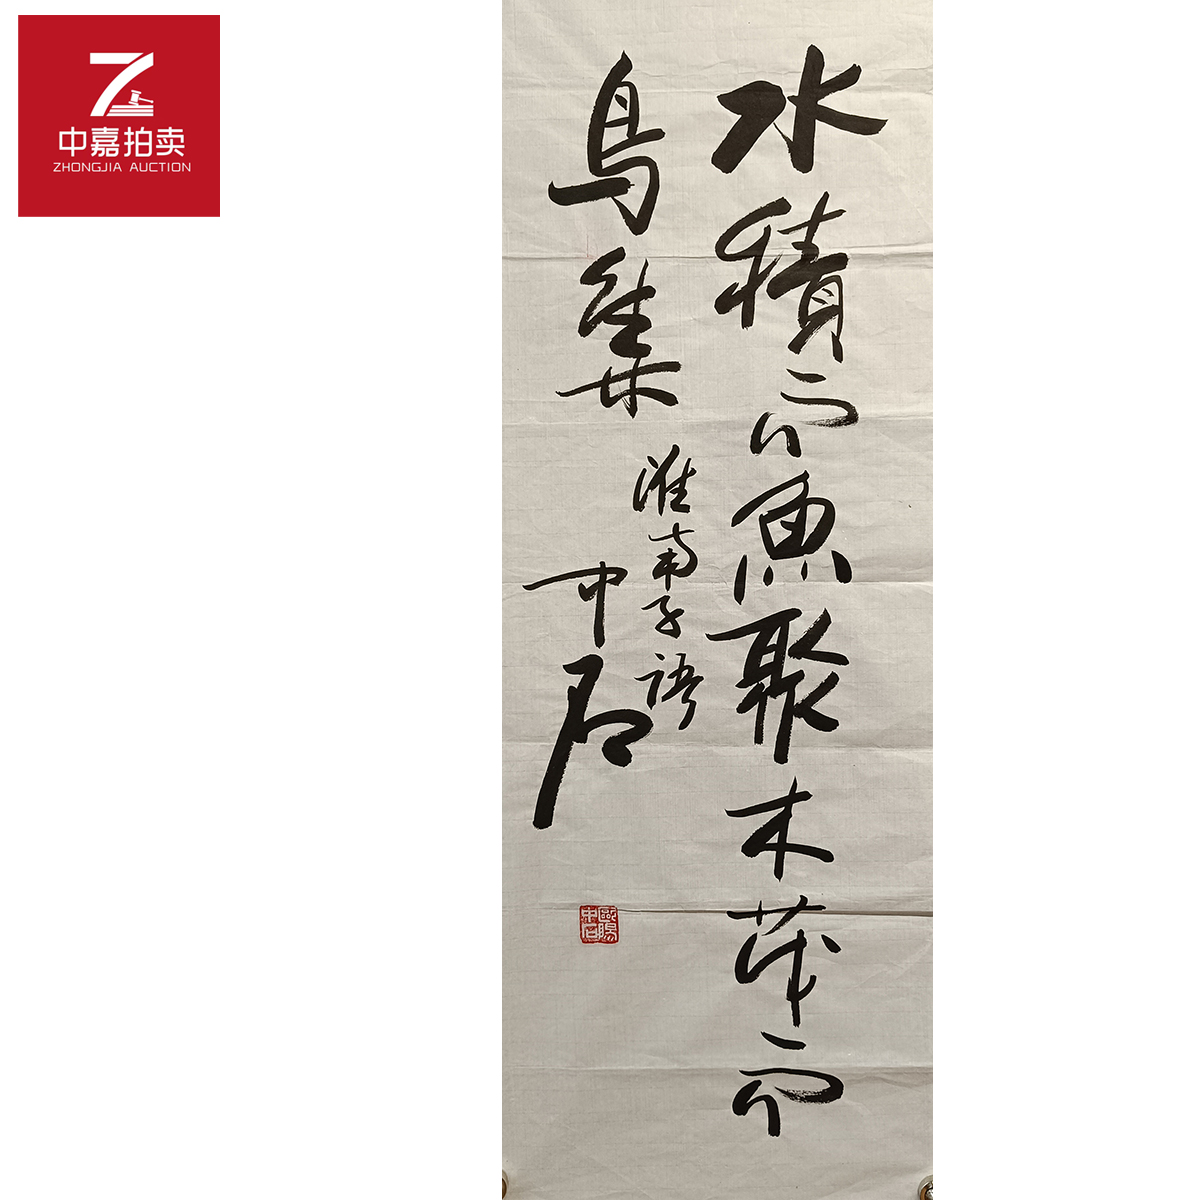 中嘉拍卖
ZHONGJIA AUCTION
水積而魚聚木茂而
鳥集
淮南子語
中石
歐陽中石